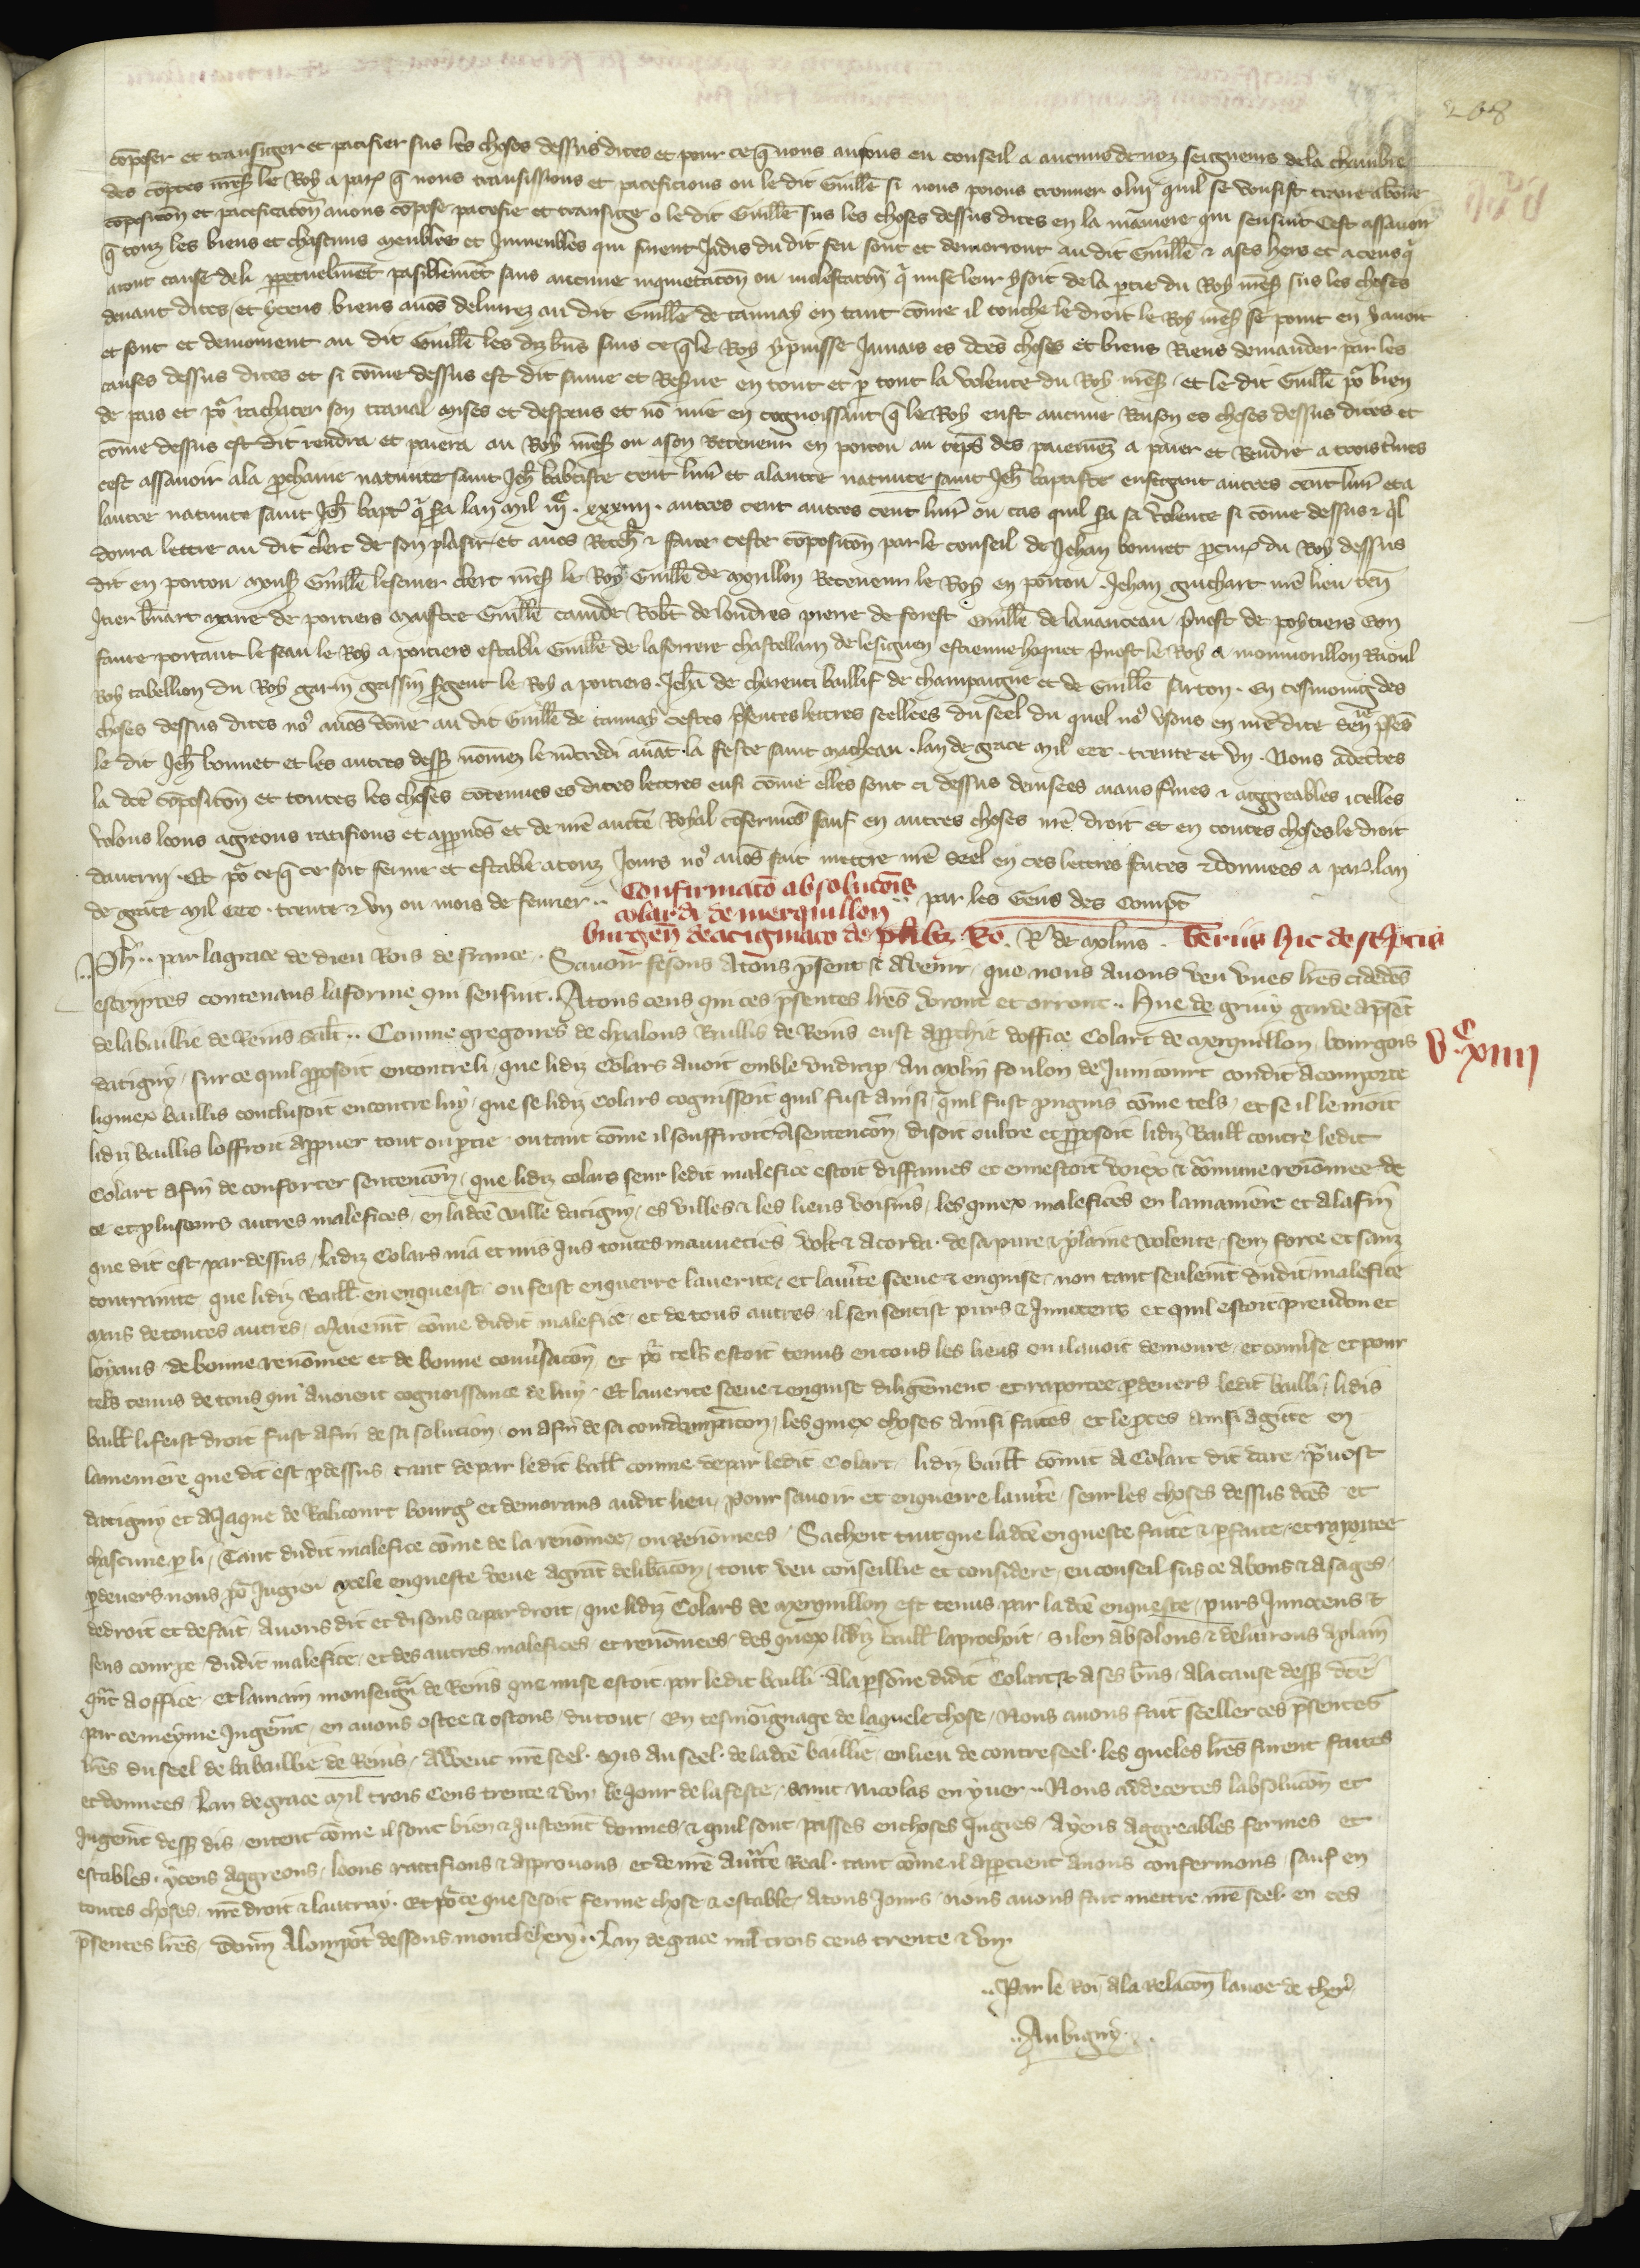 208
cōposer et transiger et pacifier sus les choses dessus dites et pour ce q̄ nous auions eu conseil a aucuns de noz seigneurs de la chambre
des cōptes mēs le Roy a par q̄ nous transissions et paceficions ou le dit Guillē si nous poions trouuer o luy quil se vousist traire a bōne
cōpositōn et paceficatōn auons cōpose pacefie et transige o le dit Guillē sus les choses dessus dites en la maniere qui sensuit Cest assauoir
q̄ touz les biens et chascuns meubles et Inmeubles qui furent Jadis du dit feu sont et demorront au dit Guillē & a ses hers et a ceus q̄
aront cause de li perpetuelmēt pasiblemēt sans aucune inquietatōn ou molestatōn q̄ mise leur ysoit de la partie du Roy mēs sus les choses
deuant dites et yceus biens auōs deliurez au dit Guillē de taunay en tant cōme il touche le droit le Roy mēs se point en y auoit
et sont et demorent au dit Guillē les diz biēs sans ce q̄ le Roy y puisse Jamais es dctēs choses et biens Riens demander par les
causes dessus dites et si cōme dessus est dit sauue et Reserue en tout et p tout la volente du Roy mēs et le dit Guillē po᷑ bien
de pais et po᷑ rachater son trauail mises et despens et nō mie en cognoissant q̄ le Roy eust aucune Raison es choses dessus dites et
cōme dessus est dit rendra et paiera au Roy mēs ou a son Receueur en poitou au tēps des paiemēz a paier et Rendre a trois t̄mes
cest assauoir a la p̄chaine natiuite saint Jeh̄ babtiste cent liur̄ et a lautre natiuite saint Jeh̄ baptiste ensegant autres cent liur̄ et a
lautre natiuite saint Jeh̄ bapt̄ q̄ sera lan mil .iijc. xxxiiij. autres cent autres cent liur̄ ou cas quil sera sa volente si cōme dessus & q̄l
donra lettre au dit clerc de son plasir et auōs Rech̄ & faite ceste cōpositōn par le conseil de Jehan bonnet procur̄ du Roy dessus
dit en poitou mons̄ Guillē lesceurer clerc mēs le Roy Guillē de morillon Receueur le Roy en poitou . Jehan guichart nr̄e lieu ten̄
Jtier b̄nart maire de poitiers maistre Guillē caude Rob̄t de londres pierre de forest Guillē de lauanceau p̄uost de poytiers Gon
faute portant le seau le Roy a poitiers establi Guillē de la forrere chastellain de lesignen estienne hoquet p̄uost le Roy a monmorillon Raoul
Roy tabellion du Roy garin gassin s̄gent le Roy a poitiers . Jeh̄a de charenci baillif de champaigne et de Guillē sarton . En tesmoing des
choses dessus dites no᷒ auōs dōne au dit Guillē de taunay cestes p̄sentes lettres scellees du seel du quel no᷒ vsons en nr̄e dite sen̄ p̄sēs
le dit Jeh̄ bonnet et les autres dess᷒ nōmez le m̄credi auāt la feste saint matheau . lan de grace mil ccc . trente et vn . Nous adectes
la dctē cōpositōn et toutes les choses cōtenues es dites lettres ensi cōme elles sont ci dessus deuisees aians fermes & aggreables icelles
volons loons agreons ratifions et approuōs et de nr̄e auctē Royal cōfermōs sauf en autres choses nr̄e droit et en toutes choses le droit
dautruj . Et po᷑ ce q̄ ce soit ferme et estable a touz Jours no᷒ auōs fait mettre nr̄e seel en ces lettres faites & donnees a par̄ lan
de grace mil ccc . trente & vn ou mois de feurier .. par les Gens des Compt̄
Confirmatō absolucōis
colardi de merguillon
burgen̄ de atigniaco de plib᷒
R̄ de molins . Verius hic de sc̄ptis
Ph̄ .. par la grace de dieu Rois de france . Sauoir fesons A tous p̄sent & A venir / que nous Auons veu vnes lr̄es ci dedēs
escriptes contenans la forme qui sensuit . A tous ceus qui ces p̄sentes lr̄es verront et orront .. Hue de gruy garde a p̄sēt
de la baillie de Reins Salt̄ .. Comme gregoires de chaalons Baillis de Reins eust approchie doffice Colart de merguillon bourgois
v.c xiiij
datigny / sur ce quil proposoit encontre li / que lidiz Colars auoit emble vn drap / Au molin foulon de Junicourt con dit A comporte
liquiex baillis concluisoit encontre luy / que se lidiz Colars cognissoit quil fust ainsi / quil fust pugnis cōme tels / et se il le nioit
lidiz baillis loffroit A prouer tout ou p̄tie ou tant cōme il souffiroit A sentencōn / disoit oultre et proposoit lidiz Baill̄ contre ledit
Colart afin de conforter sentencōn / que lidiz colars seur ledit malefice estoit diffames et en estoit voiex & cōmune renōmee de
ce et plusours autres malefices / en la dctē ville datigny / es villes & les lieus voisins / les quiex malefices en la maniere et A la fin
que dit est par dessus / Lidiz Colars nia et mis jus toutes mauueties volt & acorda de sa pure & plaine volente / senz force et sanz
contrainte que lidiz Baill̄ en enqueist ou feist enquerre la verite / et la ūite sceue & enquise / non tant seulemēt dudit malefice
mais de toutes autres / A maiemēt cōme dudit malefice / et de tous autres / il sen sentist purs & Innocens et quil estoit preudon et
loyaus de bonne renōmee et de bonne conūsacōn et po᷑ tels estoit tenus en tous les lieus ou il auoit demoure / et conūse et pour
tels tenus de tous qui Auoient cognoissance de luy / Et la verite sceue & enquise diligēment / et raportee p̄deuers ledit bailli / lidis
baill̄ li feist droit fust Afin de sa solucion / ou afin de sa condempnacion / les quiex choses Ainsi faites / et le proces Ainsi Agute en
la meniere que dit est p̄dessus / tant de par ledit baill̄ comme de par ledit Colart / lidiz baill̄ cōmit A Colart dit dare / p̄uost
datigny et A Jaque de Ralicourt bourg᷒ et demorans audit lieu / pour sauoir et enquerre la ūite / seur les choses dessus dctēs et
chascune p̄ li / Tant dudit malefice cōme de la renōmee / ou Renōmees . Sachent tuit que la dctē enqueste faite & p̄faite / et raportee
p̄deuers nous po᷑ Jugier ycele enqueste veue A grāt delib̄acōn / tout veu conseillie et considere / eu conseil sus ce A bons & A sages
de droit et de fait . Auons dit et disons & par droit / que lidiz Colars de merguillon est tenus par la dctē enqueste / purs Innocens &
sens courpe / dudit malefice / et des autres malefices / et renōmees / des quiex lidiz baill̄ laprochoit / si len absolons & deliurons A plain
qn̄t A office / Et la main monseign̄ de Reins que mise estoit par ledit bailli A la p̄sōne dudit Colart & A ses biēs / A la cause dess᷒ dctē
par ce meyme Jugemt̄ / en auons ostee & ostons / du tout / En tesmoignage de laquele chose / Nous auons fait seeller ces p̄sentes
lr̄es du seel de la baillie de Reins / Auvec nr̄e seel . Mis Au seel . de la dctē baillie en lieu de contreseel . les queles lr̄es furent faites
et donnees Lan de grace mil trois cens trente & vn le jour de la feste / saint Nicolas en yuer .. Nous Adecertes labsolucōn et
Jugemt̄ dess᷒ dis / en tent cōme il sont bien & Justemt̄ donnes / & quil sont / passes en choses Jugies / Ayens Aggreables fermes et
estables . yceus Aggreons / loons rattifions & approuons / et de nr̄e Auctē Real . tant cōme il appertient auons confermons / sauf en
toutes choses / nr̄e droit & lautruy . Et po᷑ ce que se soit ferme chose & estable / A tous Jours . nous auons fait mettre nr̄e seel . en ces
p̄sentes lr̄es / Donn̄ A lompōt dessous montlehery .. Lan de grace mil trois cens trente & vn
.. Par le Roi A la Relacōn lauoe de ther᷒
.. Aubigny ..